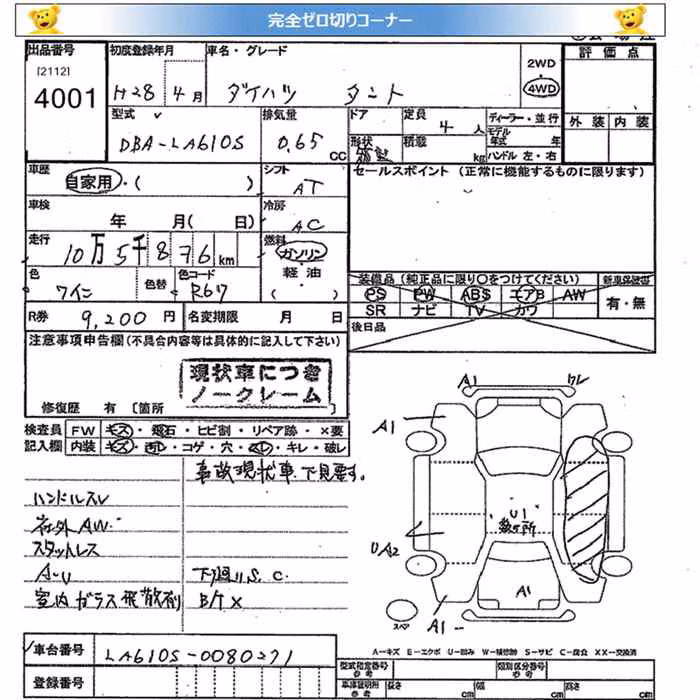 完全ゼロ切りコーナー
出品番号 初度登録年月 車名・グレード 2WD 評価点
[2112] 4001 H28 4月 ダイハツ タント 4WD
型式 排気量 ドア 定員 ディーラー・並行 外装 内装
DBA-LA610S 0.65 CC 4人 モデル年式 年
形状 積載 kg ハンドル 左・右
車歴 シフト セールスポイント (正常に機能するものに限ります)
自家用・( ) AT
車検 冷房
年 月( 日) AC
走行 燃料
10万5千876km ガソリン
軽・油
( )
色 色替 色コード 装備品(純正品に限り○をつけてください) 新車保証書
ワイン R67 PS PW ABS エアB AW 有・無
SR ナビ TV カワ
R券 9,200円 名変期限 月 日 後日品
注意事項申告欄(不具合内容等は具体的に記入して下さい)
現状車につき
ノークレーム
修復歴 有 [箇所
検査員 FW キズ・飛石・ヒビ割・リペア跡・×要
記入欄 内装 キズ・汚レ・コゲ・穴・スレ・キレ・破レ
事故現状車 下見要す。
ハンドルスレ
社外AW
スタットレス
A-U 下廻りS.C.
室内ガラス飛散剤 B/T X
A1
A1
U1
数ヶ所
UA2
A1
A1-
スペア
A-キズ E-エクボ U-凹み W-補修跡 S-サビ C-腐食 XX-交換済
車台番号 LA610S-0080271
型式指定番号 類別区分番号
登録番号 参考 長さ cm 幅 cm 高さ cm